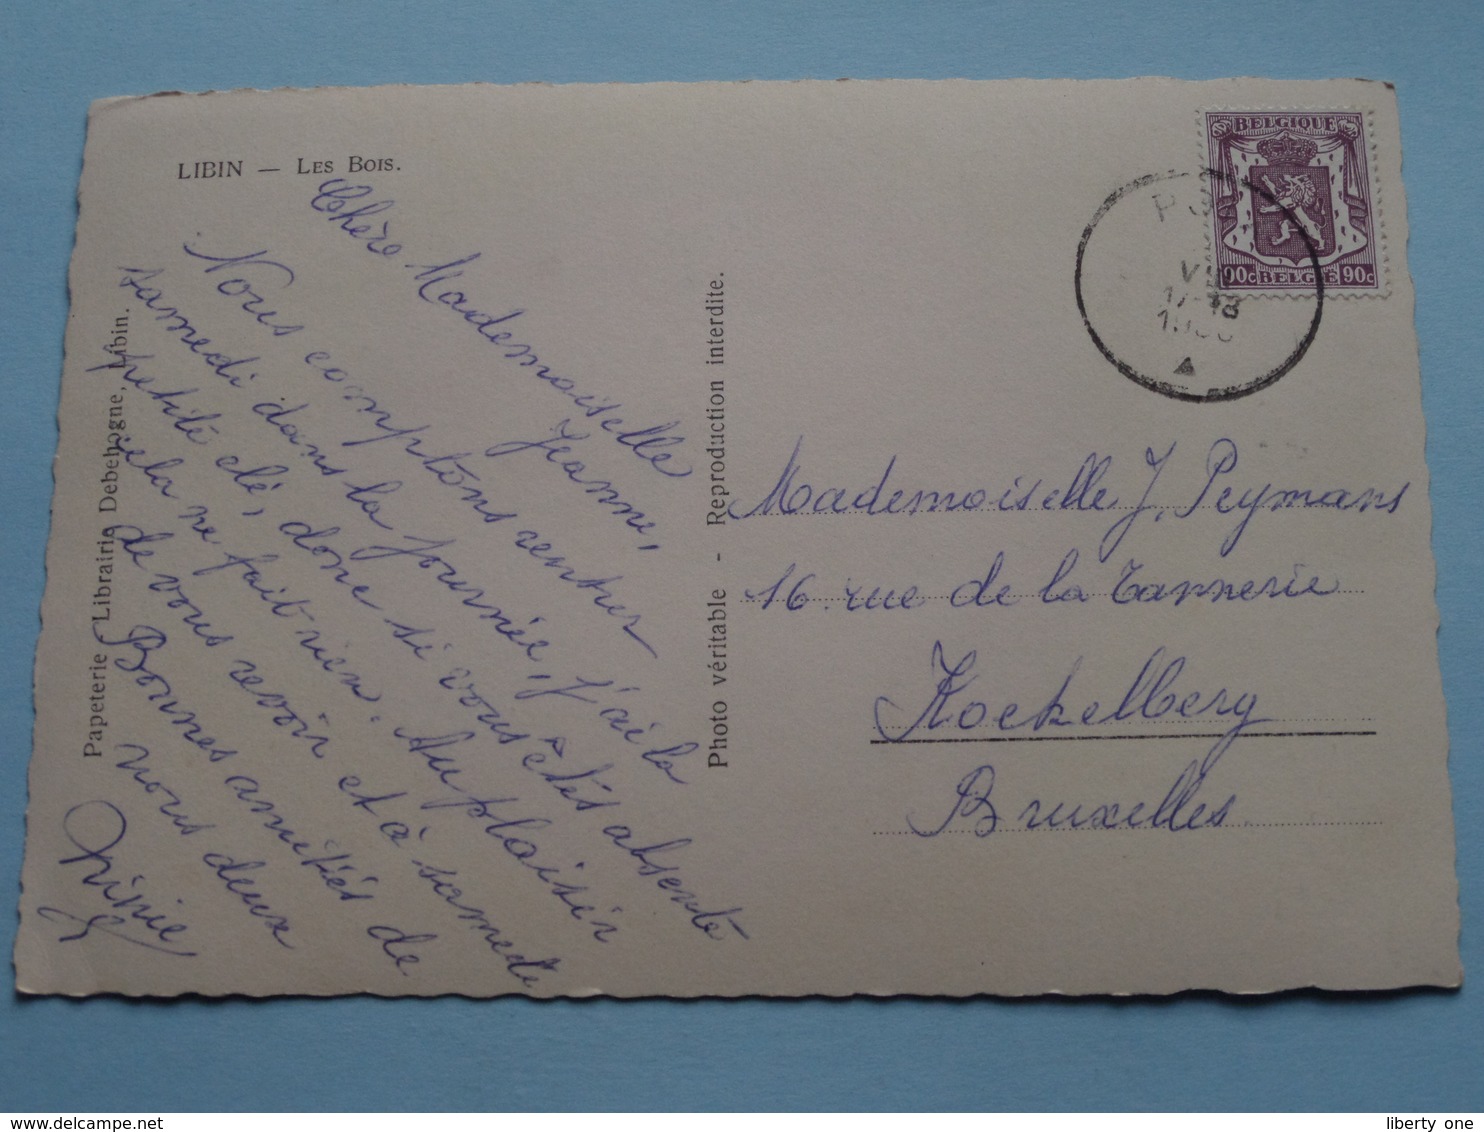 LIBIN — LES BOIS.
Chère Mademoiselle
Jeanne,
Nous comptons rentrer
samedi dans la journée, j'ai la
petite clé, donc si vous êtes absente
cela ne fait rien. Au plaisir
de vous revoir et à samedi
Bonnes amitiés de
nous deux
Ninie
Papeterie Librairie Debehogne, Libin.
Photo véritable - Reproduction interdite.
BELGIQUE
90c BELGIE 90c
17-18
Mademoiselle J. Peymans
16 rue de la Tannerie
Koekelberg
Bruxelles
liberty one